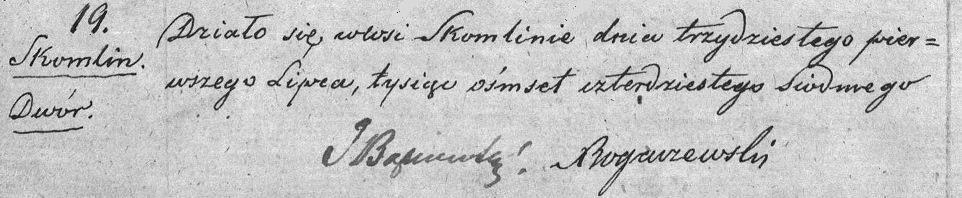 19.
Skomlin.
Dwór.
Działo się wwsi Skomlinie dnia trzydziestego pier=
wszego Lipca, tysiąc ośmset czterdziestego siódmego